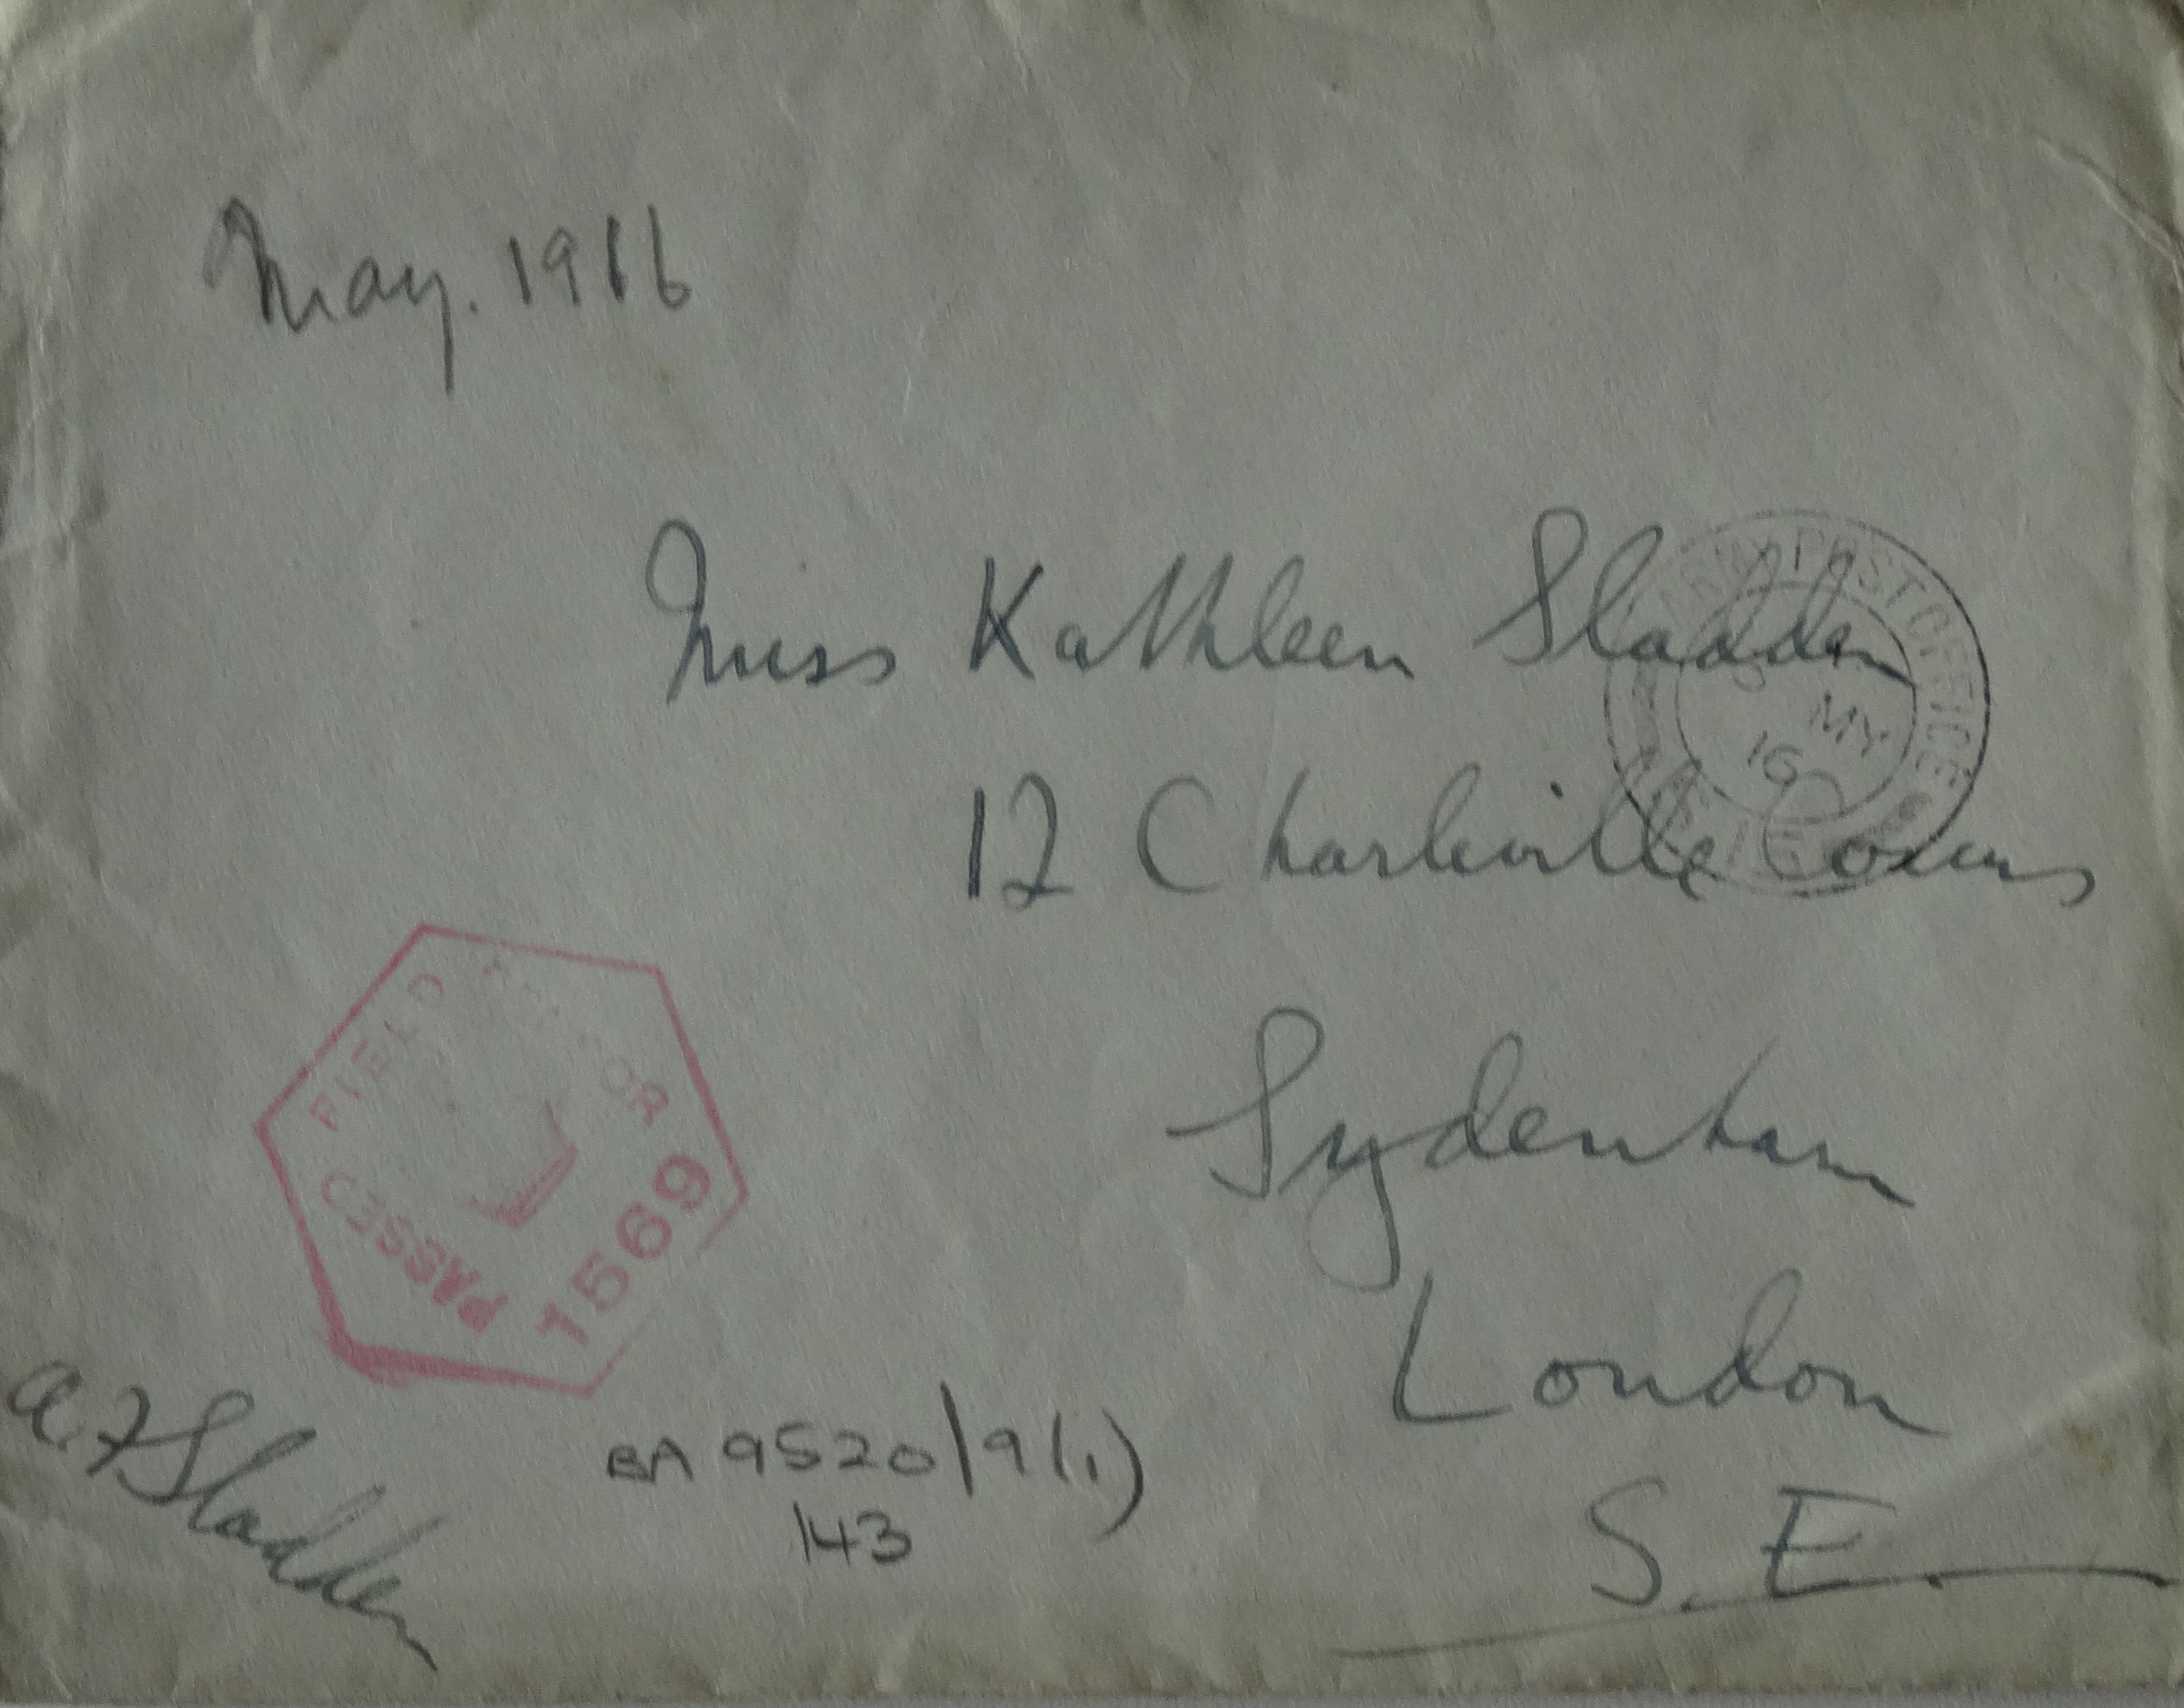 May. 1916
Miss Kathleen Sladden
ARMY POST OFFICE
MY
16
12 Charleville
Sydenham
London
S. E.
FIELD CENSOR
PASSED
1569
A. F Sladden
BA 9520/9(1)
143